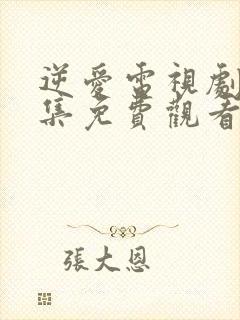 逆愛雷視劇
集免費觀看
張大恩